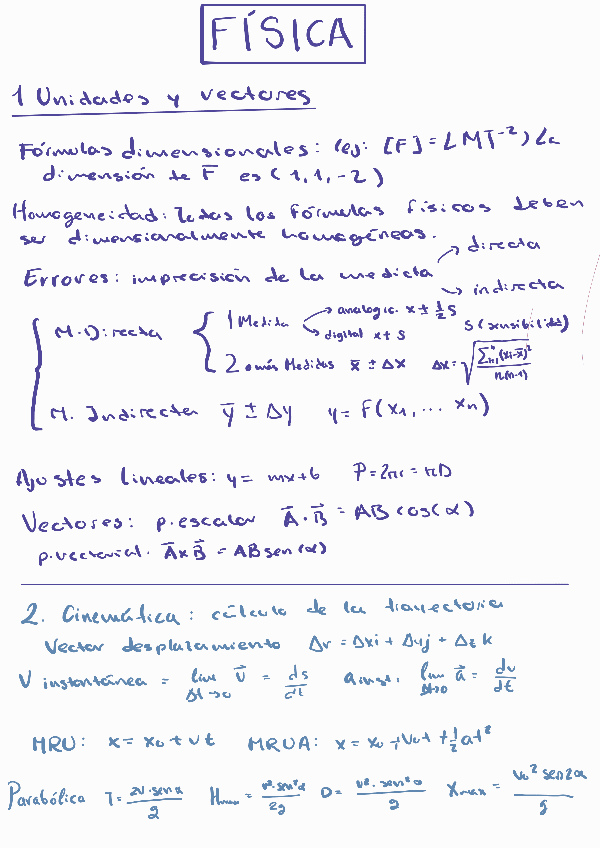 FÍSICA
1 Unidades y vectores
Fórmulas dimensionales: (ej: [F] = LMT⁻²) La
dimensión de F̄ es (1, 1, -2)
Homogeneidad: Todas las fórmulas físicas deben
ser dimensionalmente homogéneas.
Errores: imprecisión de la medida → directa
→ indirecta
M. Directa { 1 Medida → analogic. x ± 1/2 S
→ digital x ± S S (sensibilidad)
2 o más Medidas x̄ ± Δx Δx = √(∑ᵢ₌₁ⁿ (xi - x̄)² / n(n-1))
M. Indirecta ȳ ± Δy y = F(x₁, ... xn)
Ajustes lineales: y = mx + b P = 2πr = πD
Vectores: p. escalar A⃗ · B⃗ = AB cos(α)
p. vectorial. A⃗ x B⃗ = AB sen(α)
2. Cinemática: cálculo de la trayectoria
Vector desplazamiento Δr = Δxi + Δyj + Δzk
V instantánea = lim Δt→0 v⃗ = ds/dt a inst. lim Δt→0 a⃗ = dv/dt
MRU: x = x₀ + vt MRUA: x = x₀ + V₀t + 1/2 at²
Parabólica T = 2V·sen α / g Hmax = v²·sen²α / 2g D = v²·sen²α / g Xmax = V₀² sen2α / g